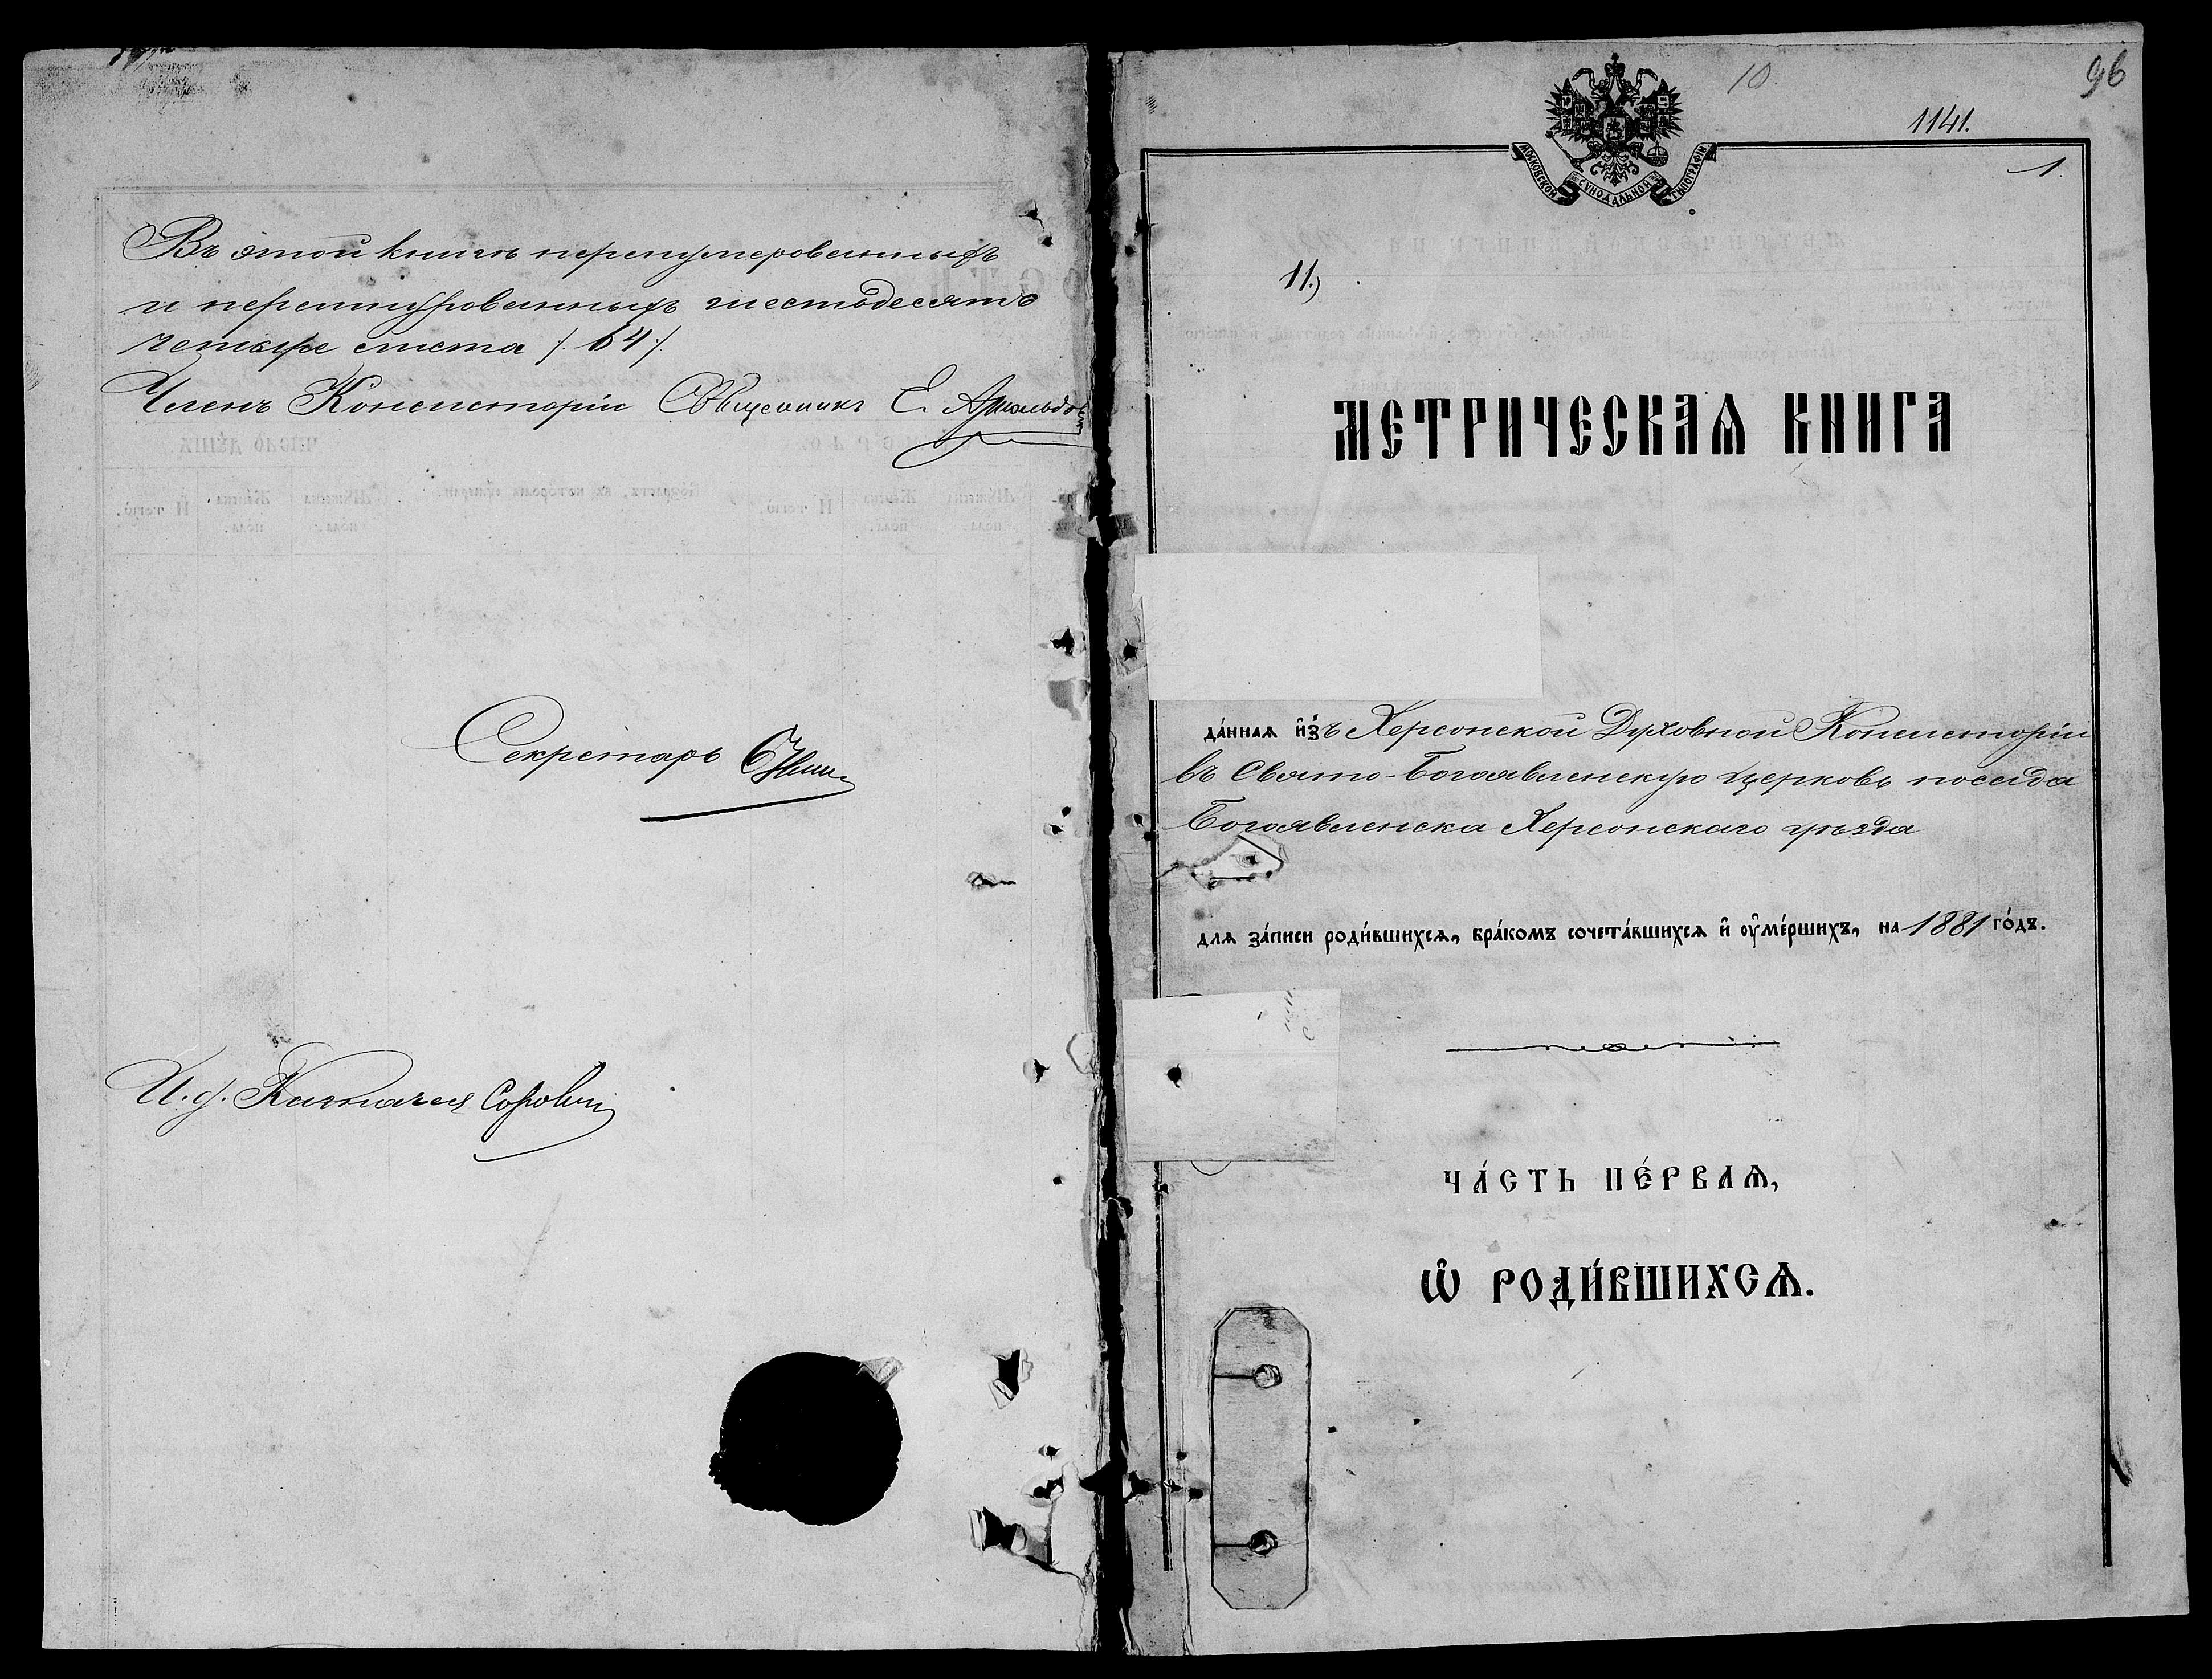 Въ этой книгѣ перенумерованныхъ
и перешнурованныхъ шестьдесятъ
четыре листа /. 64 /.
Членъ Консисторіи Священникъ Е.
Секретарь
И. д. Казначея
10.
96
1141.
МОСКОВСКОЙ СУНОДАЛЬНОЙ ТИПОГРАФІИ
1.
11.)
МЕТРИЧЕСКАѦ КНИГА
да́ннаѧ и҆зъ Херсонской Духовной Консисторіи
въ Свято-Богоявленскую церковь посада
Богоявленска Херсонскаго уѣзда
для за́писи роди́вшихсѧ, бра́комъ сочета́вшихсѧ и҆ ᲂу҆ме́ршихъ, на 1881 го́дъ.
ЧА́СТЬ ПЕ́РВАѦ,
Ѡ҆ РОДИ́ВШИХСѦ.